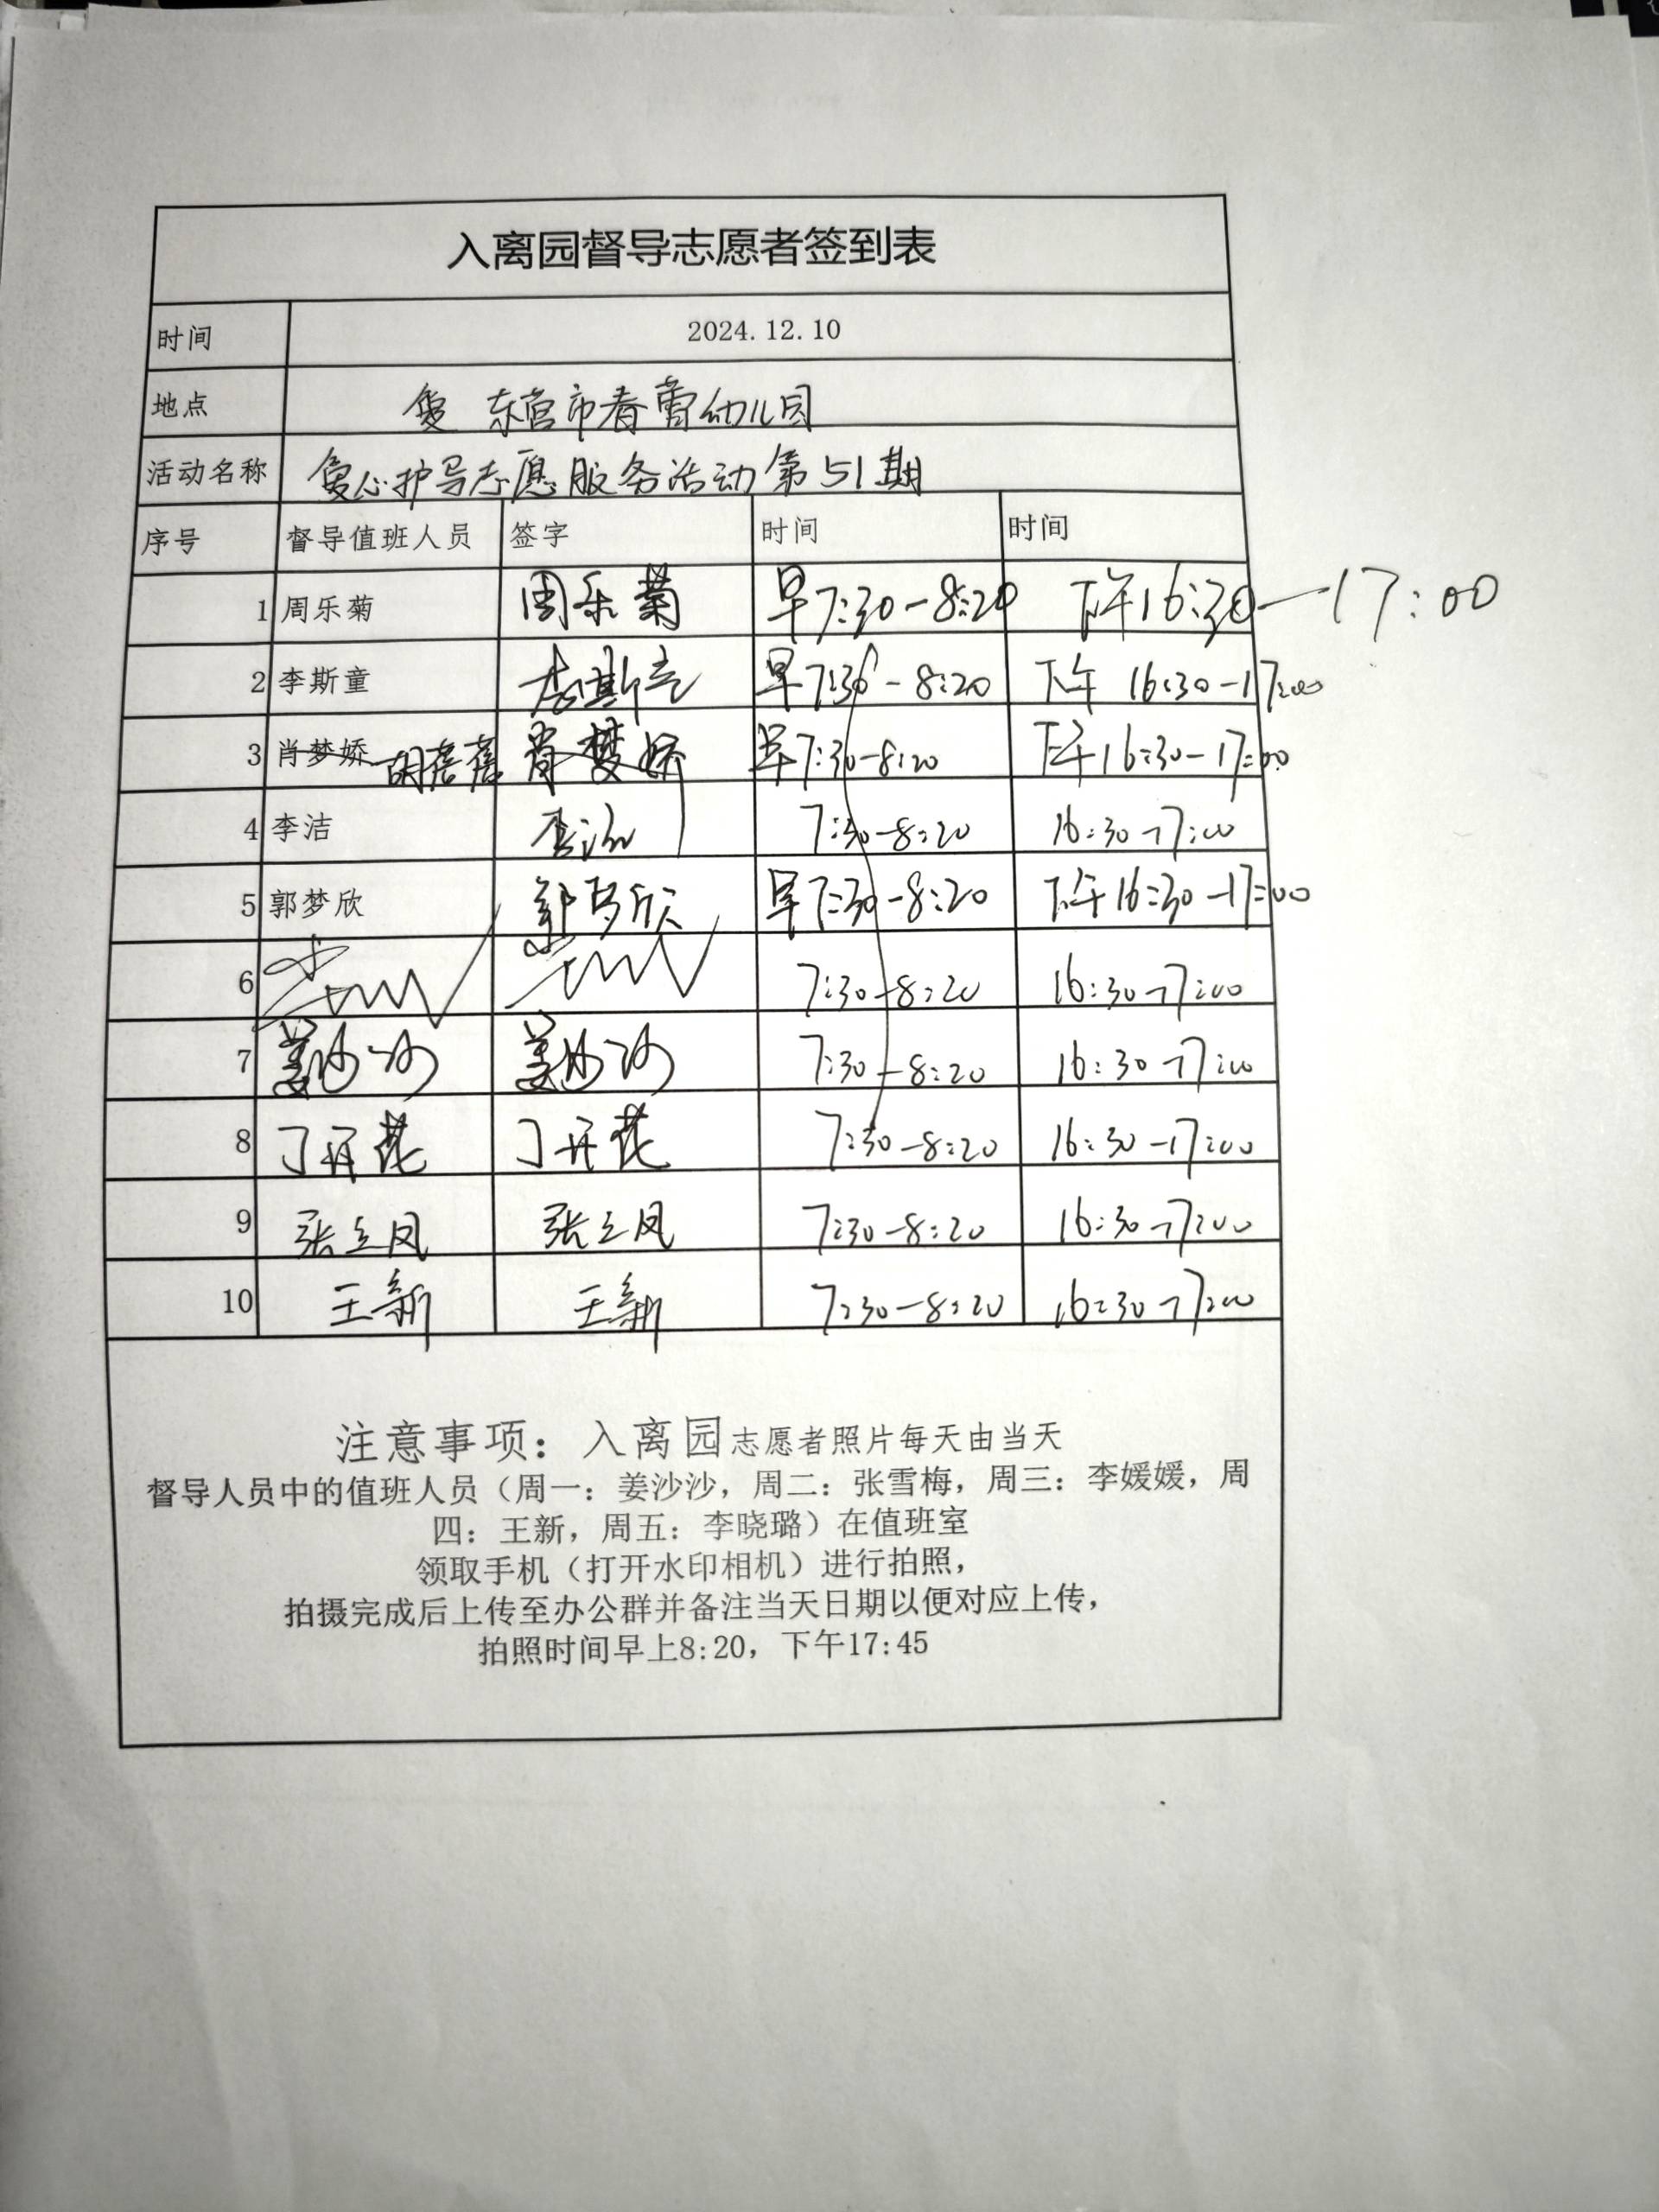 入离园督导志愿者签到表
时间 2024.12.10
地点 东营市春蕾幼儿园
活动名称 爱心护导志愿服务活动第51期
序号 督导值班人员 签字 时间 时间
1 周乐菊 周乐菊 早7:30-8:20 下午16:30-17:00
2 李斯童 李斯童 早7:30-8:20 下午 16:30-17:00
3 肖梦娇 胡蓓蓓 肖梦娇 早7:30-8:20 下午16:30-17:00
4 李洁 李洁 7:30-8:20 16:30-17:00
5 郭梦欣 郭梦欣 早7:30-8:20 下午16:30-17:00
6 7:30-8:20 16:30-17:00
7 姜沙沙 姜沙沙 7:30-8:20 16:30-17:00
8 丁开花 丁开花 7:30-8:20 16:30-17:00
9 张立凤 张立凤 7:30-8:20 16:30-17:00
10 王新 王新 7:30-8:20 16:30-17:00
注意事项：入离园志愿者照片每天由当天
督导人员中的值班人员（周一：姜沙沙，周二：张雪梅，周三：李媛媛，周
四：王新，周五：李晓璐）在值班室
领取手机（打开水印相机）进行拍照，
拍摄完成后上传至办公群并备注当天日期以便对应上传，
拍照时间早上8:20，下午17:45